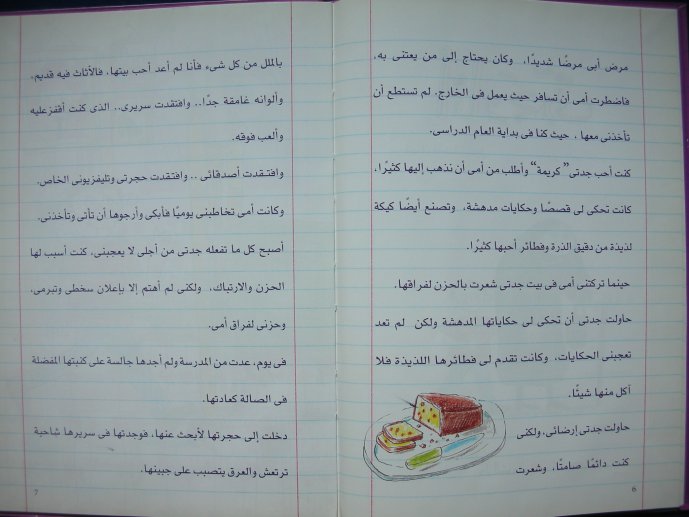 مرض أبى مرضًا شديدًا، وكان يحتاج إلى من يعتنى به،
فاضطرت أمى أن تسافر حيث يعمل فى الخارج. لم تستطع أن
تأخذنى معها ، حيث كنا فى بداية العام الدراسى.
كنت أحب جدتى "كريمة" وأطلب من أمى أن نذهب إليها كثيرًا،
كانت تحكى لى قصصًا وحكايات مدهشة، وتصنع أيضًا كيكة
لذيذة من دقيق الذرة وفطائر أحبها كثيرًا.
حينما تركتنى أمى فى بيت جدتى شعرت بالحزن لفراقها.
حاولت جدتى أن تحكى لى حكاياتها المدهشة ولكن لم تعد
تعجبنى الحكايات، وكانت تقدم لى فطائرها اللذيذة فلا
آكل منها شيئًا.
حاولت جدتى إرضائى، ولكنى
كنت دائمًا صامتًا، وشعرت
6
بالملل من كل شىء فأنا لم أعد أحب بيتها، فالأثاث فيه قديم،
وألوانه غامقة جدًا.. وافتقدت سريرى.. الذى كنت أقفز عليه
وألعب فوقه.
وافتقدت أصدقائى .. وافتقدت حجرتى وتليفزيونى الخاص.
وكانت أمى تخاطبنى يوميًا فأبكى وأرجوها أن تأتى وتأخذنى.
أصبح كل ما تفعله جدتى من أجلى لا يعجبنى، كنت أسبب لها
الحزن والارتباك، ولكنى لم أهتم إلا بإعلان سخطى وتبرمى،
وحزنى لفراق أمى.
فى يوم، عدت من المدرسة ولم أجدها جالسة على كنبتها المفضلة
فى الصالة كعادتها.
دخلت إلى حجرتها لأبحث عنها، فوجدتها فى سريرها شاحبة
ترتعش والعرق يتصبب على جبينها.
7